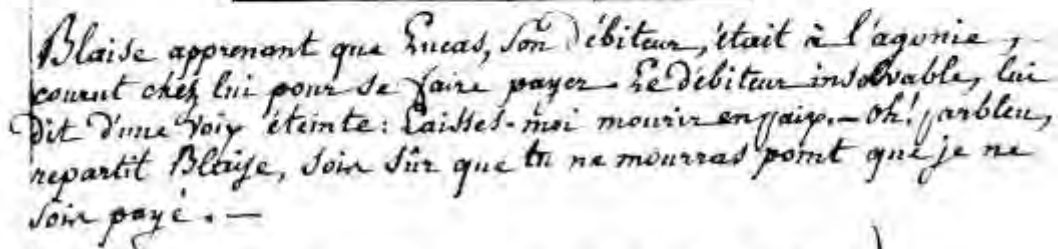 Blaise apprenant que Lucas, son débiteur, était à l'agonie,
courut chez lui pour se faire payer. Le débiteur insolvable, lui
dit d'une voix éteinte: Laisses-moi mourir en paix. — Oh! parbleu,
repartit Blaise, sois sûr que tu ne mourras point que je ne
sois payé. —